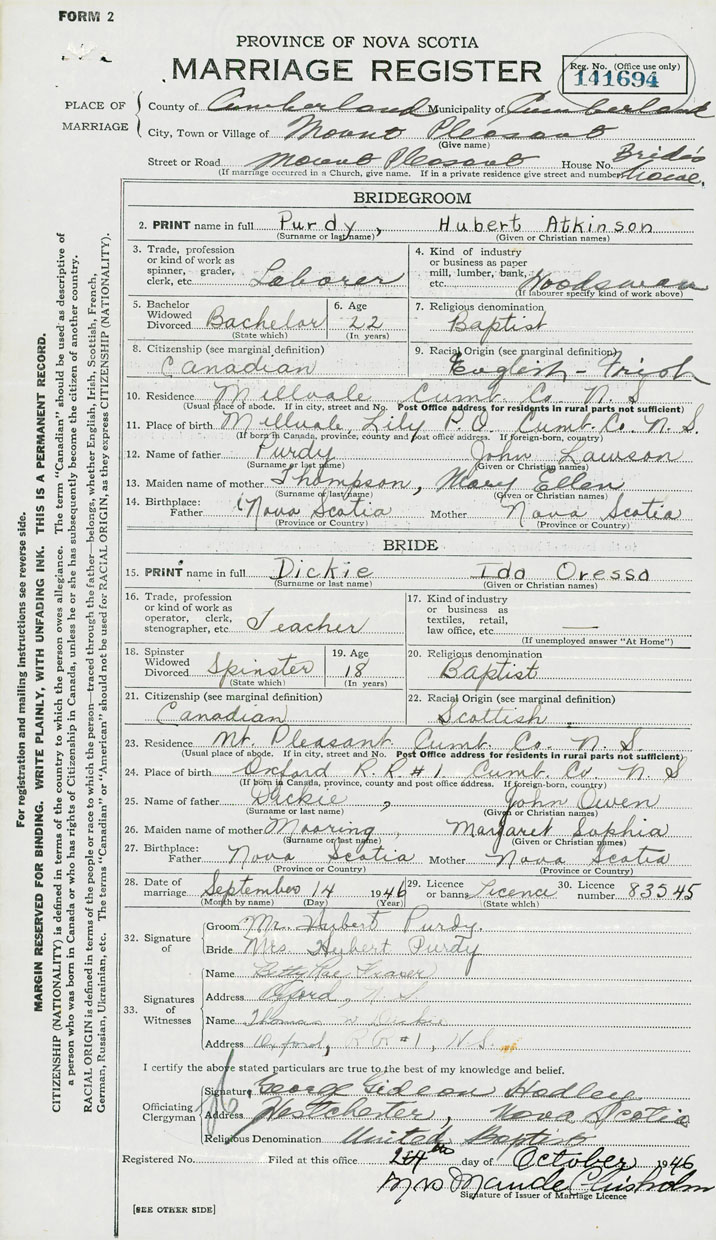 FORM 2
PROVINCE OF NOVA SCOTIA
MARRIAGE REGISTER
Reg. No. (Office use only)
141694
PLACE OF MARRIAGE
County of Cumberland Municipality of Cumberland
City, Town or Village of Mount Pleasant
(Give name)
Street or Road Mount Pleasant House No. Bride's House,
(If marriage occurred in a Church, give name. If in a private residence give street and number)
BRIDEGROOM
2. PRINT name in full Purdy, Hubert Atkinson
(Surname or last name) (Given or Christian names)
3. Trade, profession or kind of work as spinner, grader, clerk, etc. Laborer
4. Kind of industry or business as paper mill, lumber, bank, etc. Woodsman
(If labourer specify kind of work above)
5. Bachelor Widowed Divorced Bachelor
(State which)
6. Age 22
(In years)
7. Religious denomination
Baptist
8. Citizenship (see marginal definition)
Canadian
9. Racial Origin (see marginal definition)
English - Irish
10. Residence Millvale Cumb. Co. N. S
(Usual place of abode. If in city, street and No. Post Office address for residents in rural parts not sufficient)
11. Place of birth Millvale, Lily P.O. Cumb. Co. N. S.
(If born in Canada, province, county and post office address. If foreign-born, country)
12. Name of father Purdy John Lawson
(Surname or last name) (Given or Christian names)
13. Maiden name of mother Thompson, Mary Ellen
(Surname or last name) (Given or Christian names)
14. Birthplace: Father Nova Scotia Mother Nova Scotia
(Province or Country) (Province or Country)
BRIDE
15. PRINT name in full Dickie Ida Oressa
(Surname or last name) (Given or Christian names)
16. Trade, profession or kind of work as operator, clerk, stenographer, etc Teacher
17. Kind of industry or business as textiles, retail, law office, etc. —
(If unemployed answer "At Home")
18. Spinster Widowed Divorced Spinster
(State which)
19. Age 18
(In years)
20. Religious denomination
Baptist
21. Citizenship (see marginal definition)
Canadian
22. Racial Origin (see marginal definition)
Scottish
23. Residence Mt. Pleasant Cumb. Co. N. S.
(Usual place of abode. If in city, street and No. Post Office address for residents in rural parts not sufficient)
24. Place of birth Oxford R. R # 1 Cumb. Co N. S
(If born in Canada, province, county and post office address. If foreign-born, country)
25. Name of father Dickie, John Owen
(Surname or last name) (Given or Christian names)
26. Maiden name of mother Mooring, Margaret Sophia
(Surname or last name) (Given or Christian names)
27. Birthplace: Father Nova Scotia Mother Nova Scotia
(Province or Country) (Province or Country)
28. Date of marriage September 14 1946
(Month by name) (Day) (Year)
29. Licence or banns Licence
(State which)
30. Licence number 83545
32. Signature of
Groom Mr. Hubert Purdy.
Bride Mrs. Hubert Purdy
33. Signatures of Witnesses
Name Betty Rae Fraser
Address Oxford, N. S
Name Thomas W
Address Oxford, R R #1, N.S.
I certify the above stated particulars are true to the best of my knowledge and belief.
Officiating Clergyman
Signature George Gideon Hadley
Address Westchester, Nova Scotia
Religious Denomination United Baptist
Registered No. Filed at this office day of October 1946
Mrs Maude Chisholm
Signature of Issuer of Marriage Licence
[SEE OTHER SIDE]
For registration and mailing instructions see reverse side.
MARGIN RESERVED FOR BINDING. WRITE PLAINLY, WITH UNFADING INK. THIS IS A PERMANENT RECORD.
CITIZENSHIP (NATIONALITY) is defined in terms of the country to which the person owes allegiance. The term "Canadian" should be used as descriptive of
a person who was born in Canada or who has rights of Citizenship in Canada, unless he or she has subsequently become the citizen of another country.
RACIAL ORIGIN is defined in terms of the people or race to which the person—traced through the father—belongs, whether English, Irish, Scottish, French,
German, Russian, Ukrainian, etc. The terms "Canadian" or "American" should not be used for RACIAL ORIGIN, as they express CITIZENSHIP (NATIONALITY).